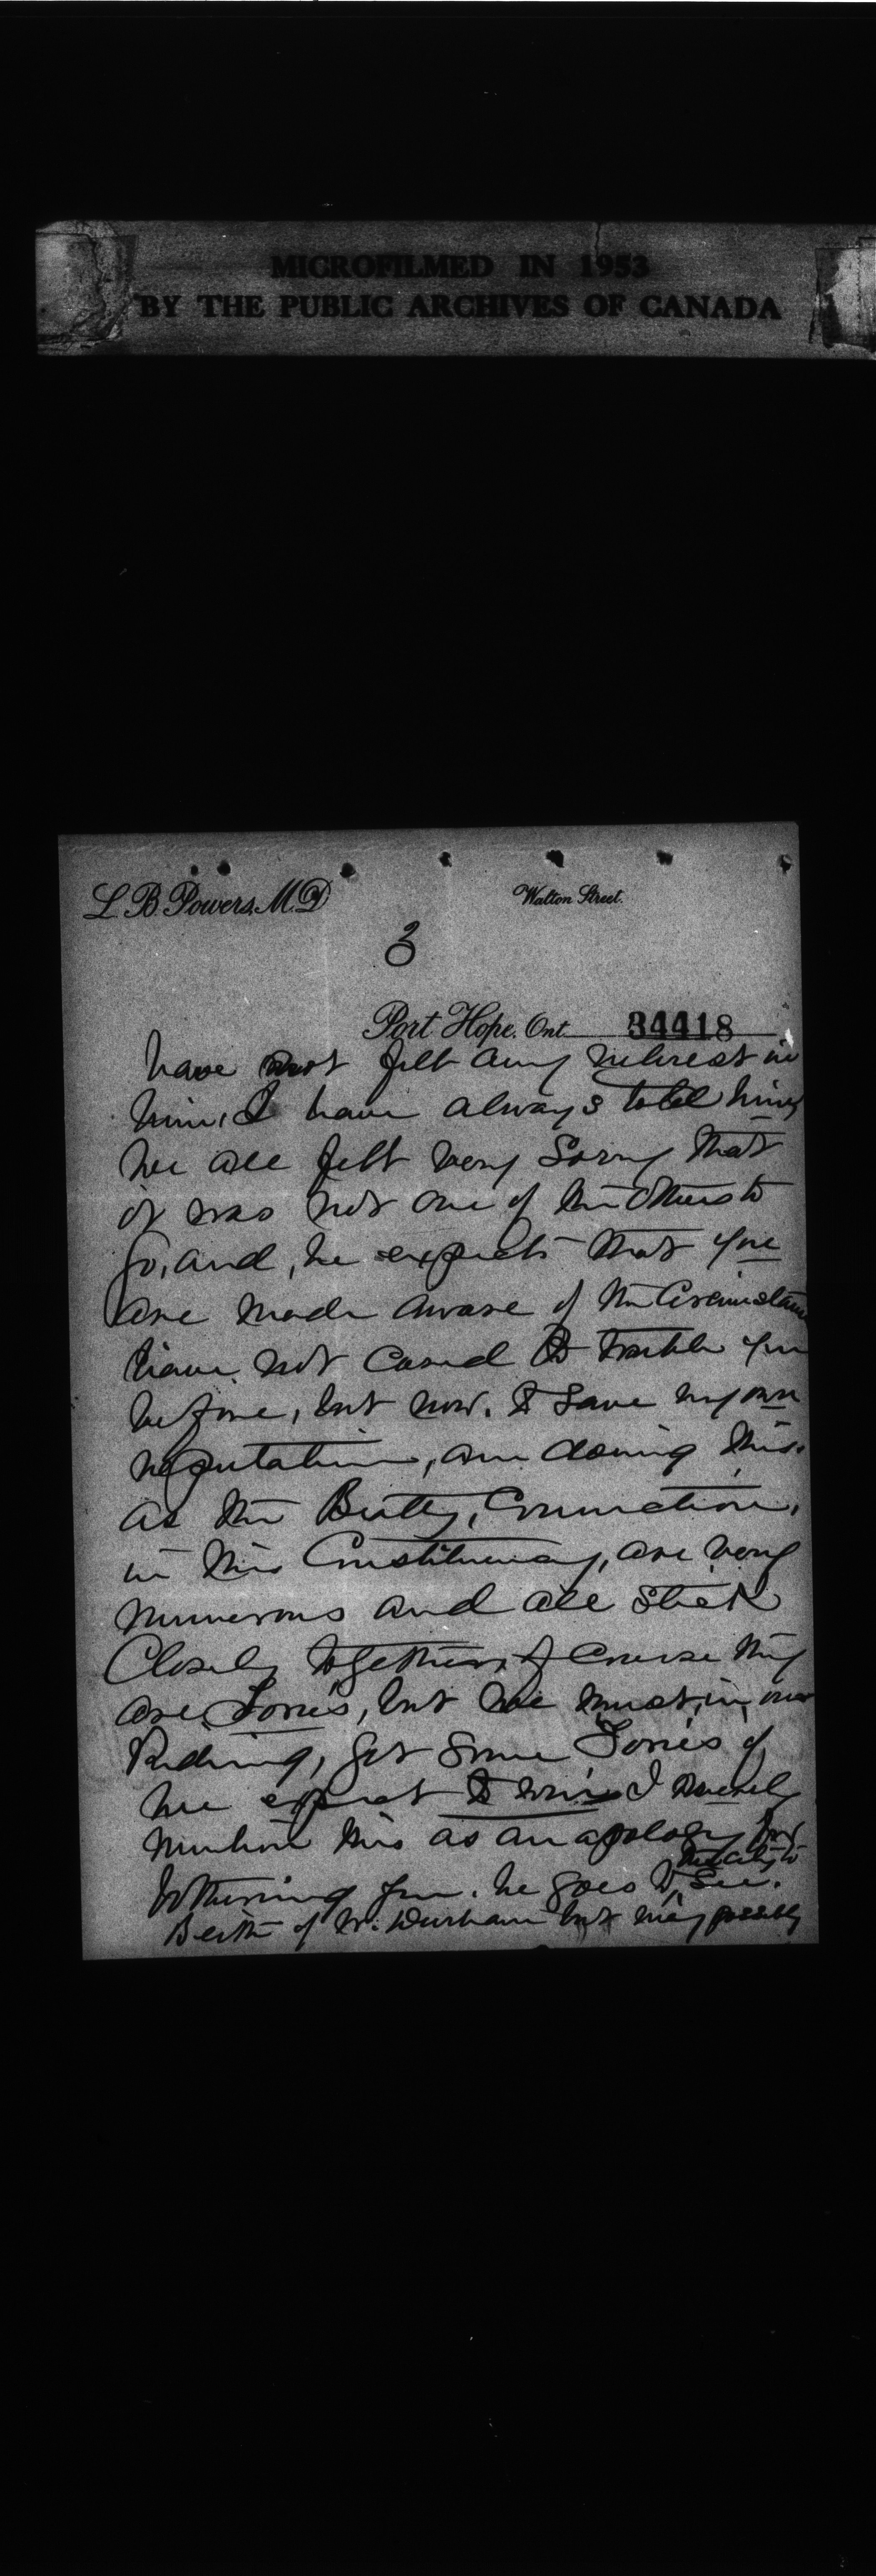 MICROFILMED IN 1953
BY THE PUBLIC ARCHIVES OF CANADA
L. B. Powers, M.D
Walton Street.
3
Port Hope, Ont. 34418
have not felt any interest in
him, I have always told him
we all felt very sorry that
it was not one of the others to
go, and, he expects that you
are made aware of the
have not cared to trouble you
before, but now, to save my own
reputation, am doing this.
as the Beatty, Connection,
in this Constituency, are very
numerous and all stick
Closely together, of course they
are Tories, but we must, in, our
Riding, get some Tories if
we expect to win I merely
mention this as an apology for
bothering you. he goes to see.
Beith of W. Durham but may possibly